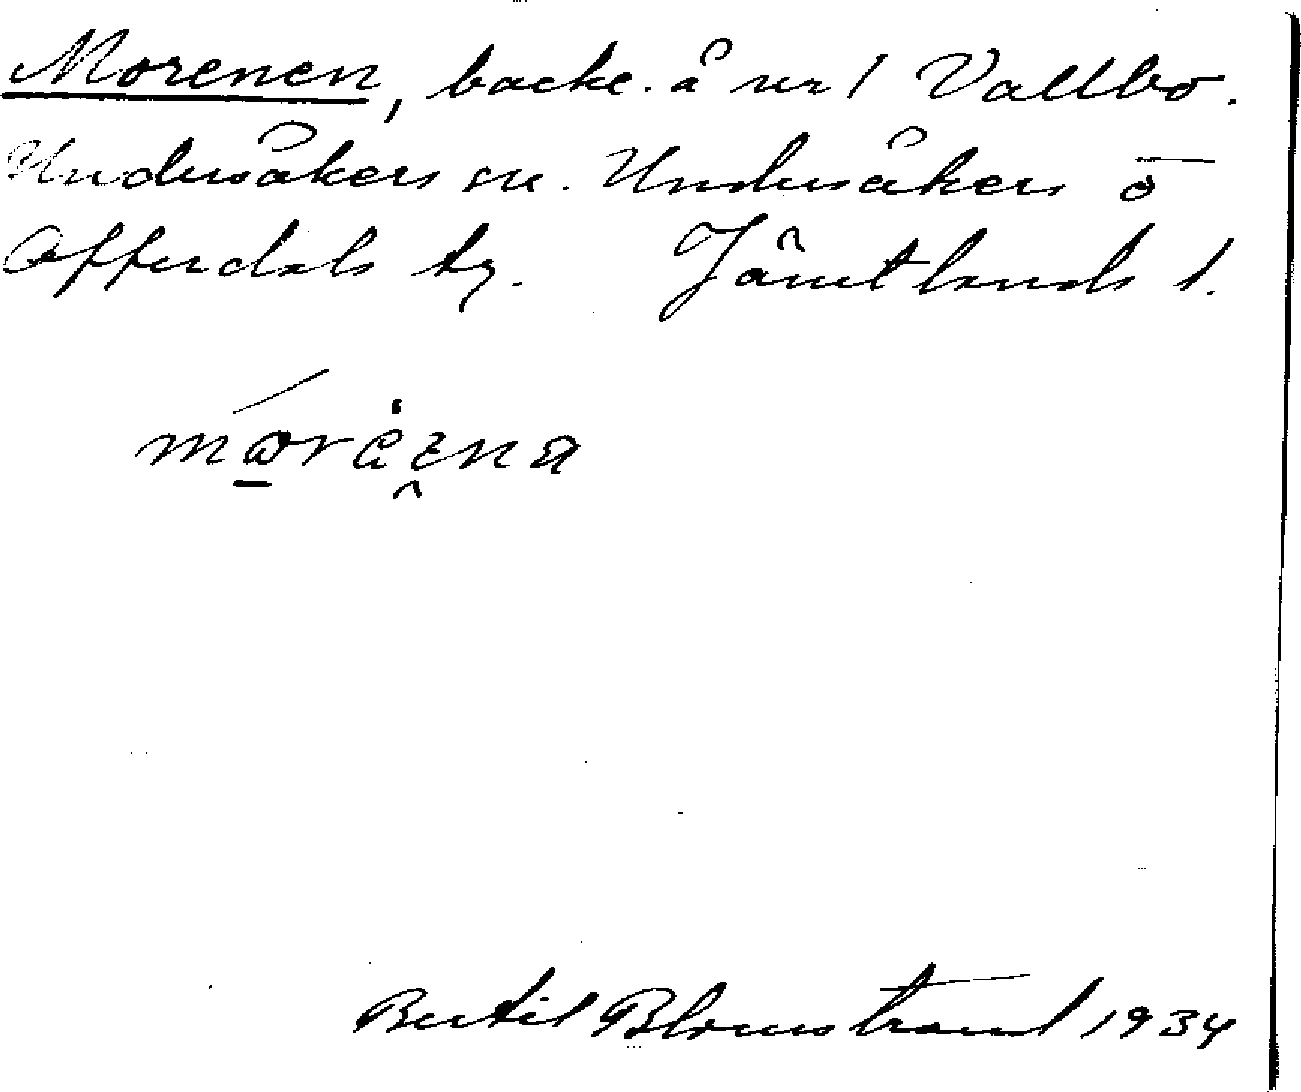 Morenen, backe. å nr 1 Vallbo.
Undersåkers sn. Undersåkers o
Offerdals tg. Jämtlands l.
Bertil Blomstrand 1934